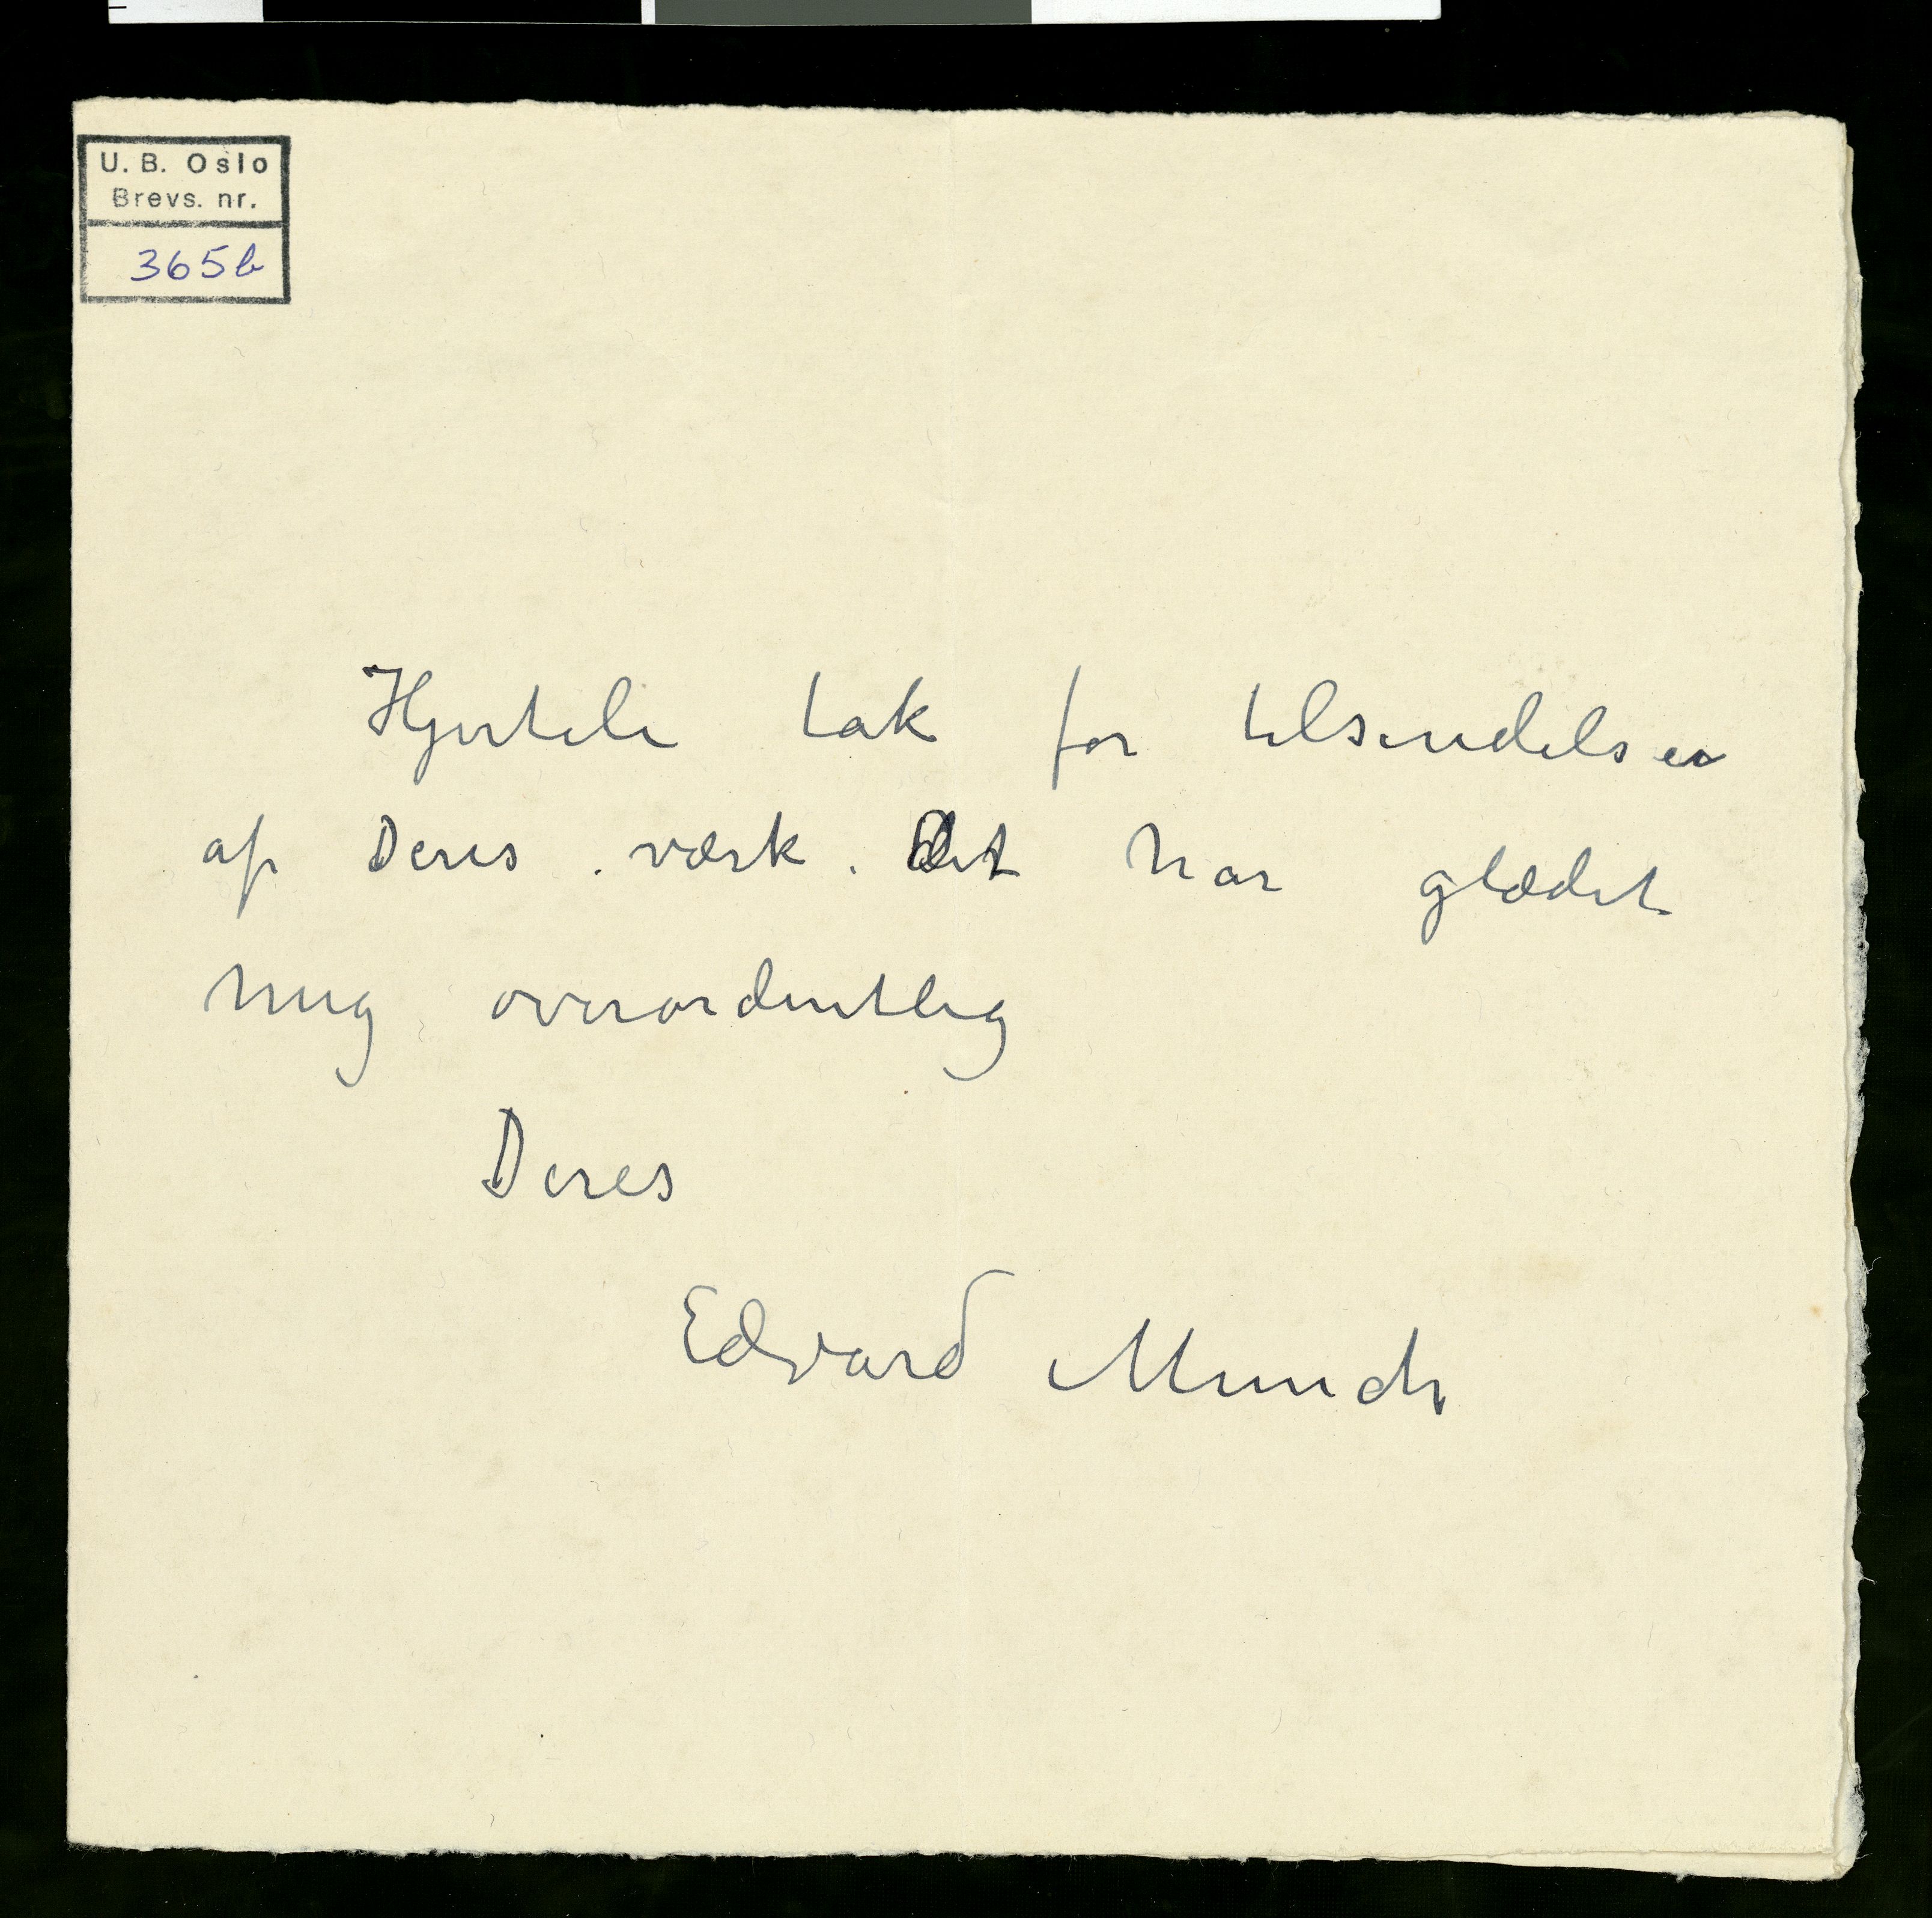 U. B. Oslo
Brevs. nr.
365b
Hjerteli tak for tilsendelsen
af Deres værk. Det har glædet
mig overordentlig
Deres
Edvard Munch